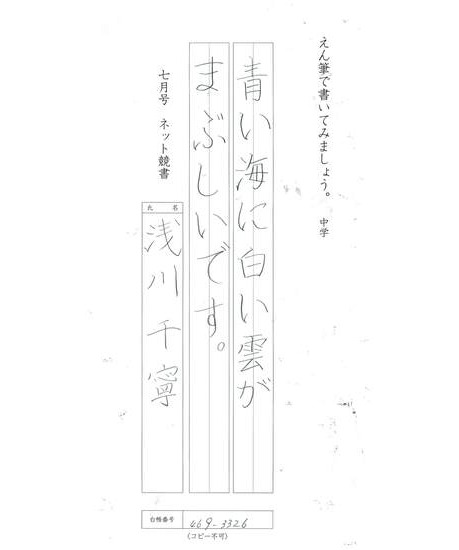 えん筆で書いてみましょう。 中学
青い海に白い雲が
まぶしいです。
七月号 ネット競書
氏名
浅川千寧
台帳番号
469-3326
(コピー不可)